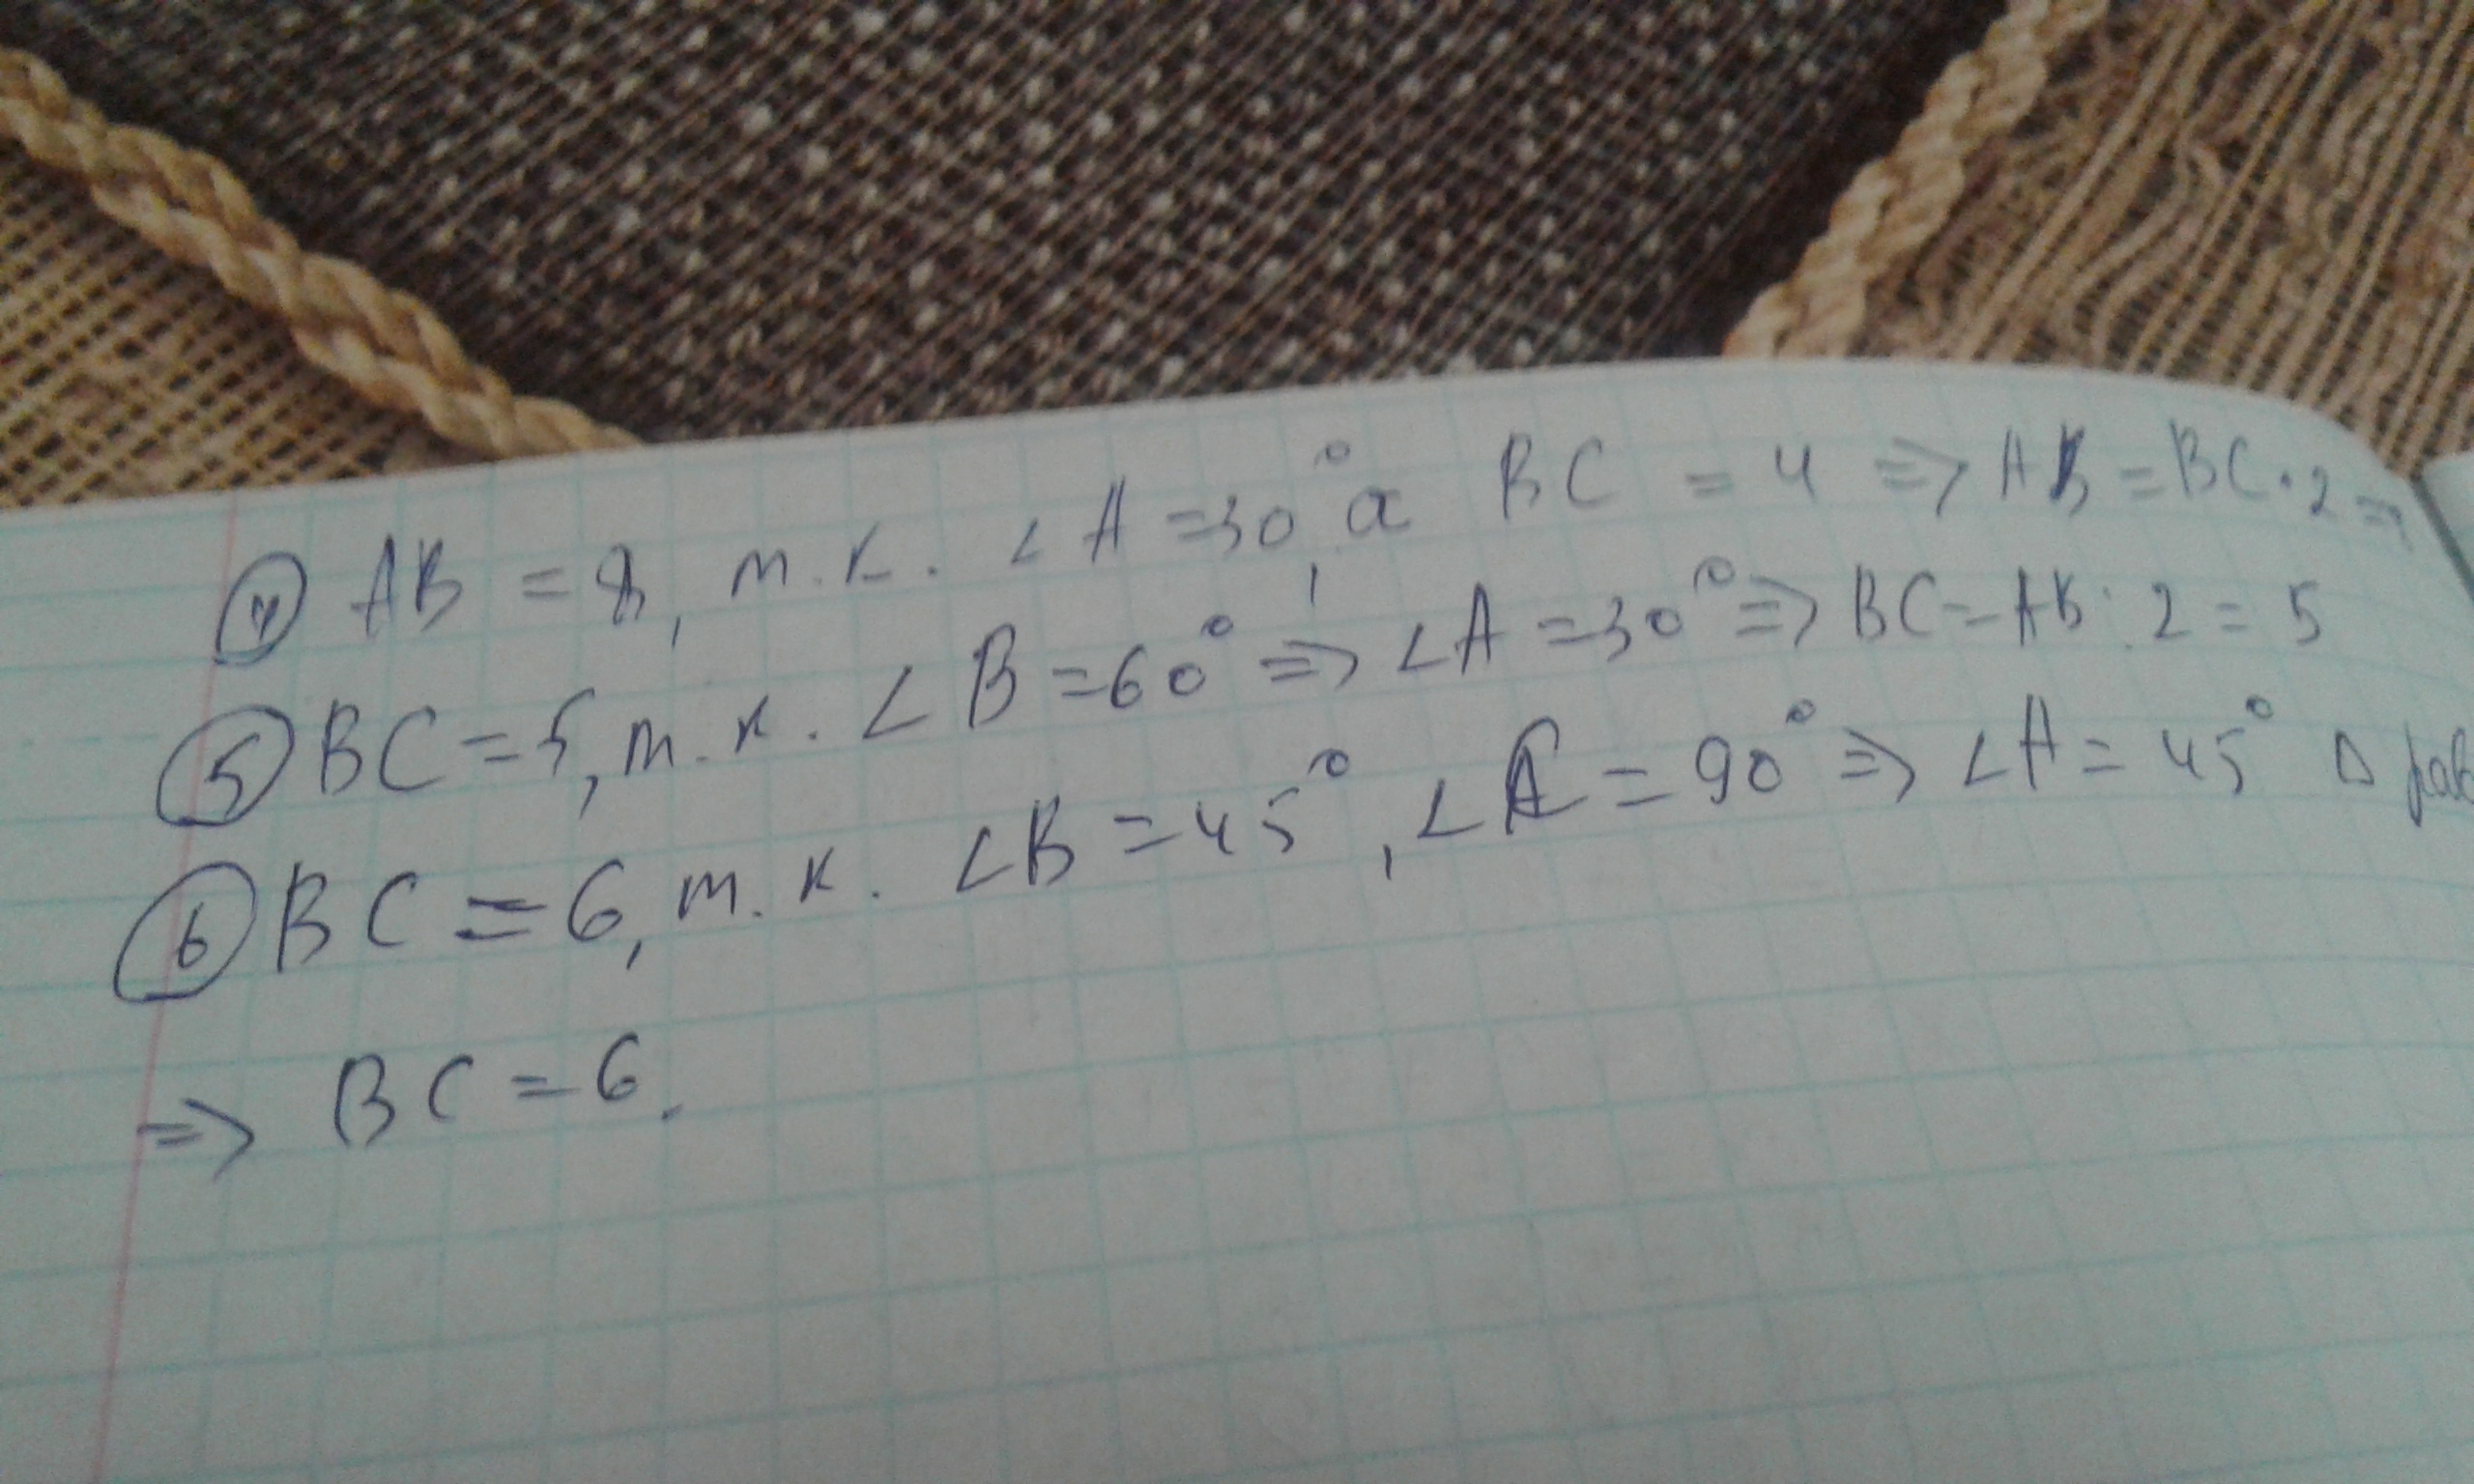 ④ AB = 8, т.к. ∠A = 30°, а BC = 4 => AB = BC · 2 =>
⑤ BC = 5, т.к. ∠B = 60° => ∠A = 30° => BC = AB : 2 = 5
⑥ BC = 6, т.к. ∠B = 45°, ∠C = 90° => ∠A = 45° Δ рав
=> BC = 6.